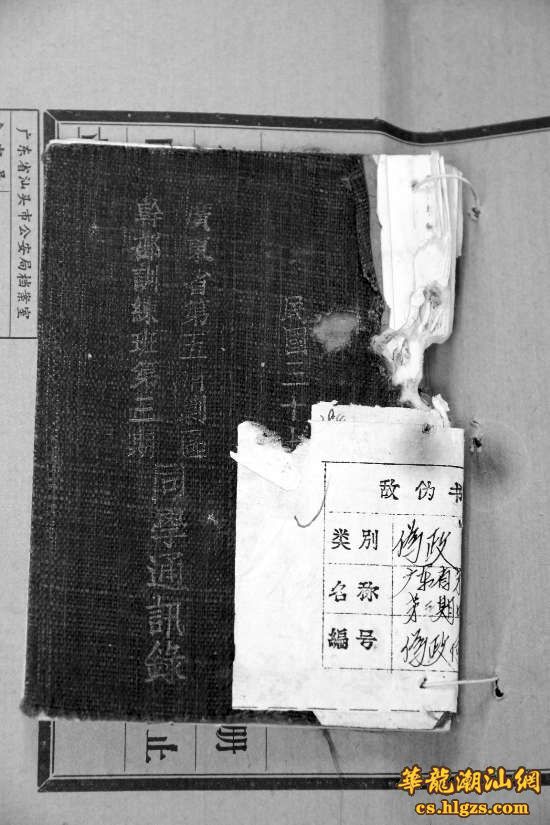 民國三十
廣東省第五清剿區
幹部訓練班第三期
同學通訊錄
敌伪书
类别 伪政
名称 广东省第
第三期
编号 伪政
广东省汕头市公安局档案室
册
止
華龍潮汕網
cs.hlgzs.com